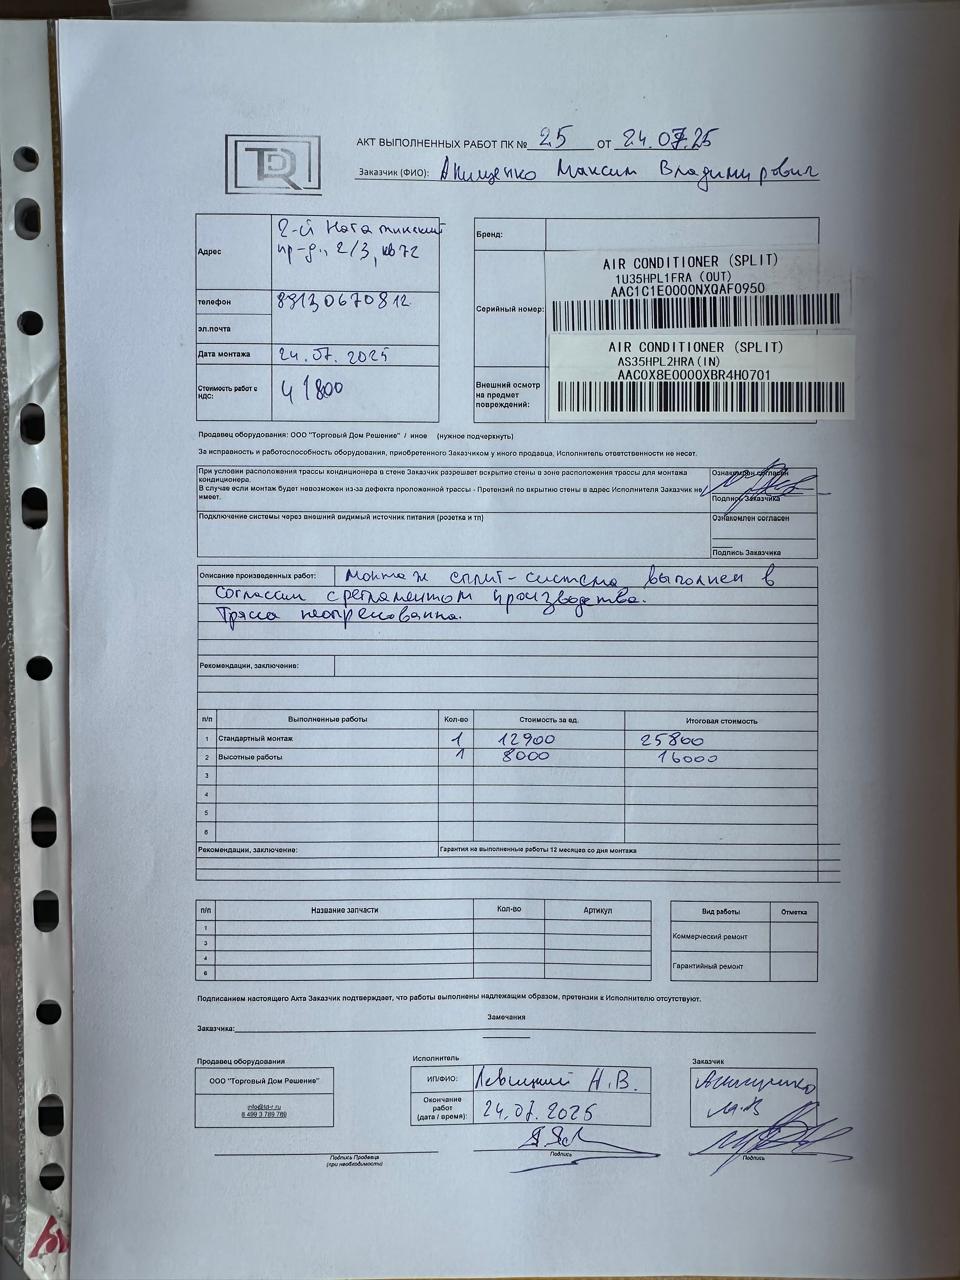 TDR
АКТ ВЫПОЛНЕННЫХ РАБОТ ПК № 25 ОТ 24.07.25
Заказчик (ФИО): Анищенко Максим Владимирович
Адрес
2-й Нагатинский
пр-д., 2/3, кв 72
телефон 89130670812
эл.почта
Дата монтажа 24.07.2025
Стоимость работ с
НДС:
41800
Бренд:
Серийный номер:
AIR CONDITIONER (SPLIT)
1U35HPL1FRA (OUT)
AAC1C1E0000NXQAF0950
AIR CONDITIONER (SPLIT)
AS35HPL2HRA(IN)
AAC0X8E0000XBR4H0701
Внешний осмотр
на предмет
повреждений:
Продавец оборудования: ООО "Торговый Дом Решение" / иное (нужное подчеркнуть)
За исправность и работоспособность оборудования, приобретенного Заказчиком у иного продавца, Исполнитель ответственности не несет.
При условии расположения трассы кондиционера в стене Заказчик разрешает вскрытие стены в зоне расположения трассы для монтажа
кондиционера.
В случае если монтаж будет невозможен из-за дефекта проложенной трассы - Претензий по вкрытию стены в адрес Исполнителя Заказчик не
имеет.
Ознакомлен согласен
Подпись Заказчика
Подключение системы через внешний видимый источник питания (розетка и тп)
Ознакомлен согласен
Подпись Заказчика
Описание произведенных работ: Монтаж сплит-система выполнен в
согласии с регламентом производства.
Трасса неопресованна.
Рекомендации, заключение:
п/п Выполненные работы Кол-во Стоимость за ед. Итоговая стоимость
1 Стандартный монтаж 1 12900 25800
2 Высотные работы 1 8000 16000
3
4
5
6
Рекомендации, заключение: Гарантия на выполненные работы 12 месяцев со дня монтажа
п/п Название запчасти Кол-во Артикул
1
3
4
6
Вид работы Отметка
Коммерческий ремонт
Гарантийный ремонт
Подписанием настоящего Акта Заказчик подтверждает, что работы выполнены надлежащим образом, претензии к Исполнителю отсутствуют.
Замечания
Заказчика:
Продавец оборудования
ООО "Торговый Дом Решение"
info@td-r.ru
8 499 3 789 789
Подпись Продавца
(при необходимости)
Исполнитель
ИП/ФИО: Левицкий Н.В.
Окончание
работ
(дата / время):
24.07.2025
Подпись
Заказчик
Анищенко
М.В
Подпись